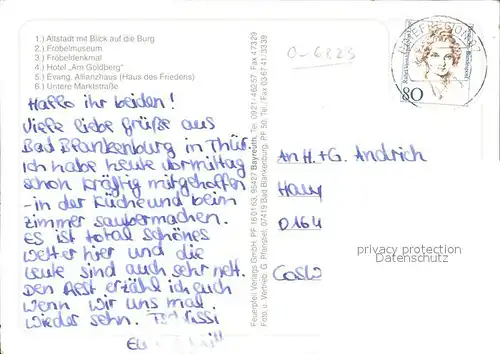 1.) Altstadt mit Blick auf die Burg
2.) Fröbelmuseum
3.) Fröbeldenkmal
4.) Hotel „Am Goldberg"
5.) Evang. Allianzhaus (Haus des Friedens)
6.) Untere Marktstraße
Hallo ihr beiden!
Viele liebe Grüße aus
Bad Blankenburg in Thür.
Ich habe heute vormittag
schon kräftig mitgeholfen
- in der Küche und beim
Zimmer saubermachen.
Es ist total schönes
Wetter hier und die
Leute sind auch sehr nett.
Den Rest erzähl ich euch
wenn wir uns mal
wieder sehn. Tschüssi
Feuerpfeil Verlags GmbH, PF 16 01 63, 95427 Bayreuth, Tel. 0921-46257, Fax 47329
Foto u. Vertrieb: G. Pfannstiel, 07419 Bad Blankenburg, PF 59, Tel./Fax 03 67 41/33 39
O-6823
80
An H.+G. Andrich
D 164
privacy protection
Datenschutz